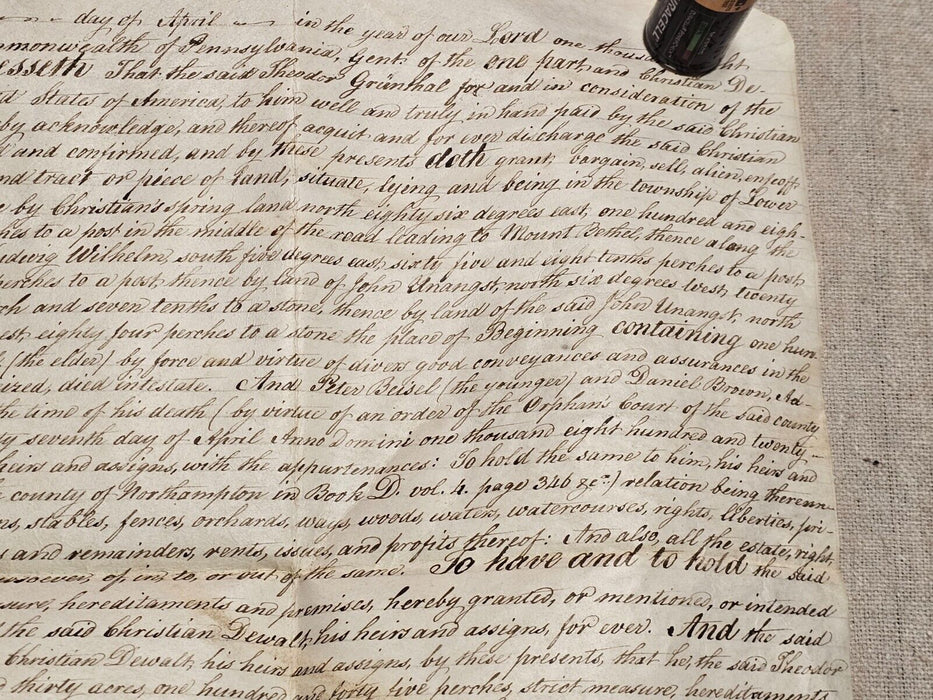 day of April in the year of our Lord one thous
mmonwealth of Pennsylvania, Gent: of the one part, and Christian De-
esseth That the said Theodor Grünthal for and in consideration of the
d States of America, to him well and truly in hand paid by the said Christian
by acknowledge, and thereof acquit and for ever discharge the said Christian
and confirmed, and by these presents doth grant, bargain, sell, alien, enfeoff,
nd tract or piece of land, situate, lying and being in the township of Lower
e by Christian's Spring land north eighty six degrees east, one hundred and eigh-
hes to a post in the middle of the road leading to Mount Bethel, thence along the
udwig Wilhelm, south five degrees east, sixty five and eight tenths perches to a post,
perches to a post, thence by land of John Unangst, north six degrees west, twenty
ch and seven tenths to a stone, thence by land of the said John Unangst, north
st, eighty four perches to a stone the place of Beginning containing one hun-
(the elder) by force and virtue of divers good conveyances and assurances in the
ized, died intestate. And Peter Beisel (the younger) and Daniel Brown, Ad-
the time of his death (by virtue of an order of the Orphan's Court of the said county
ty seventh day of April Anno Domini one thousand eight hundred and twenty-
heirs and assigns, with the appurtenances: To hold the same to him, his heirs and
county of Northampton in Book D. vol. 4. page 346 &c.) relation being thereun-
ns, stables, fences, orchards, ways, woods, waters, watercourses, rights, liberties, pri-
s and remainders, rents, issues, and profits thereof: And also, all the estate, right,
soever, of, in, to, or out of the same. To have and to hold the said
sure, hereditaments and premises, hereby granted, or mentioned, or intended
the said Christian Dewalt, his heirs and assigns, for ever. And the said
Christian Dewalt, his heirs and assigns, by these presents, that he, the said Theodor
d thirty acres, one hundred and forty five perches, strict measure, hereditaments
DURACELL